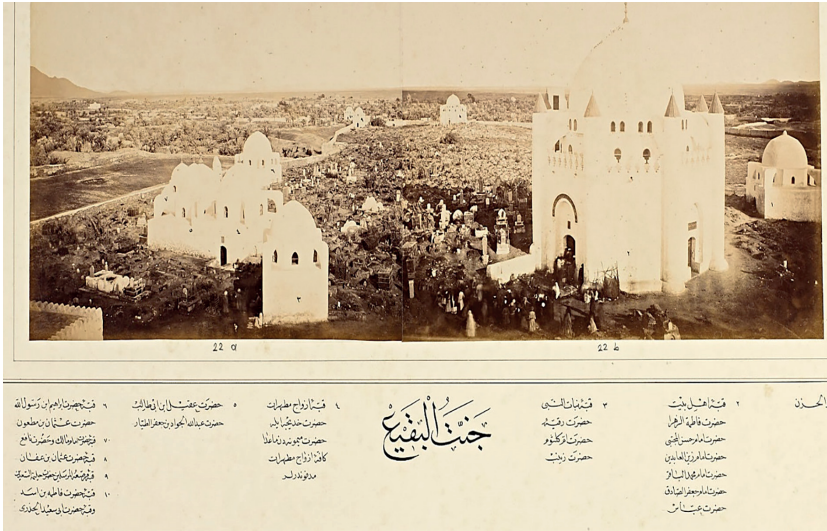 22 a
22 b
جنت البقيع
الحزن
٢ قبۀ اهل بيت
حضرت فاطمة الزهرا
حضرت امام حسن المجتبى
حضرت امام زين العابدين
حضرت امام محمد الباقر
حضرت امام جعفر الصادق
حضرت عباس
٣ قبۀ بنات النبى
حضرت رقيه
حضرت ام كلثوم
حضرت زينب
٤ قبۀ ازواج مطهرات
حضرت خديجه
حضرت ميمونه دن ماعدا
كافۀ ازواج مطهرات
مدفوندرلر
٥ حضرت عقيل ابن ابى طالب
حضرت عبد الله الجواد بن جعفر الطيار
٦ قبۀ حضرت ابراهيم ابن رسول الله
حضرت عثمان بن مظعون
٧ قبۀ حضرت امام مالك وحضرت نافع
٨ قبۀ حضرت عثمان بن عفان
٩ قبۀ حضرت
١٠ قبۀ حضرت فاطمه بن اسد
وقبۀ حضرت ابى سعيد الخدرى